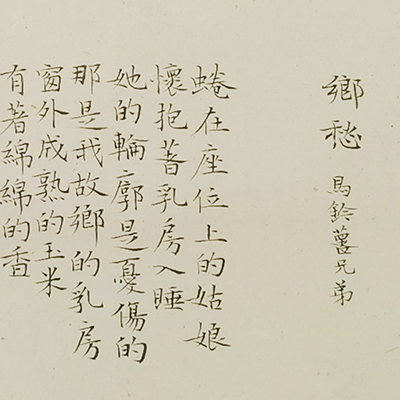 鄉愁 馬鈴薯兄弟
蜷在座位上的姑娘
懷抱著乳房入睡
她的輪廓是憂傷的
那是我故鄉的乳房
窗外成熟的玉米
有著綿綿的香